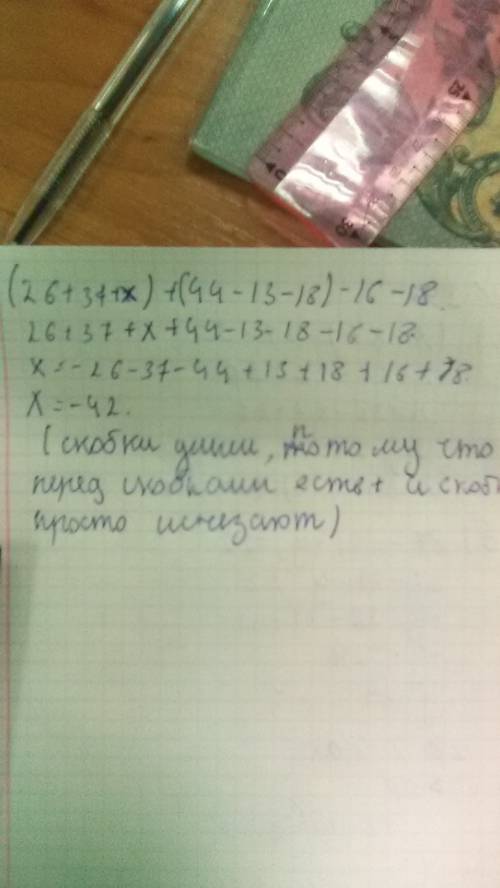 (26+37+x)+(44-13-18)-16-18
26+37+x+44-13-18-16-18
x=-26-37-44+13+18+16+18
x=-42.
(скобки потому что
перед скобками есть + и скоб
просто исчезают)